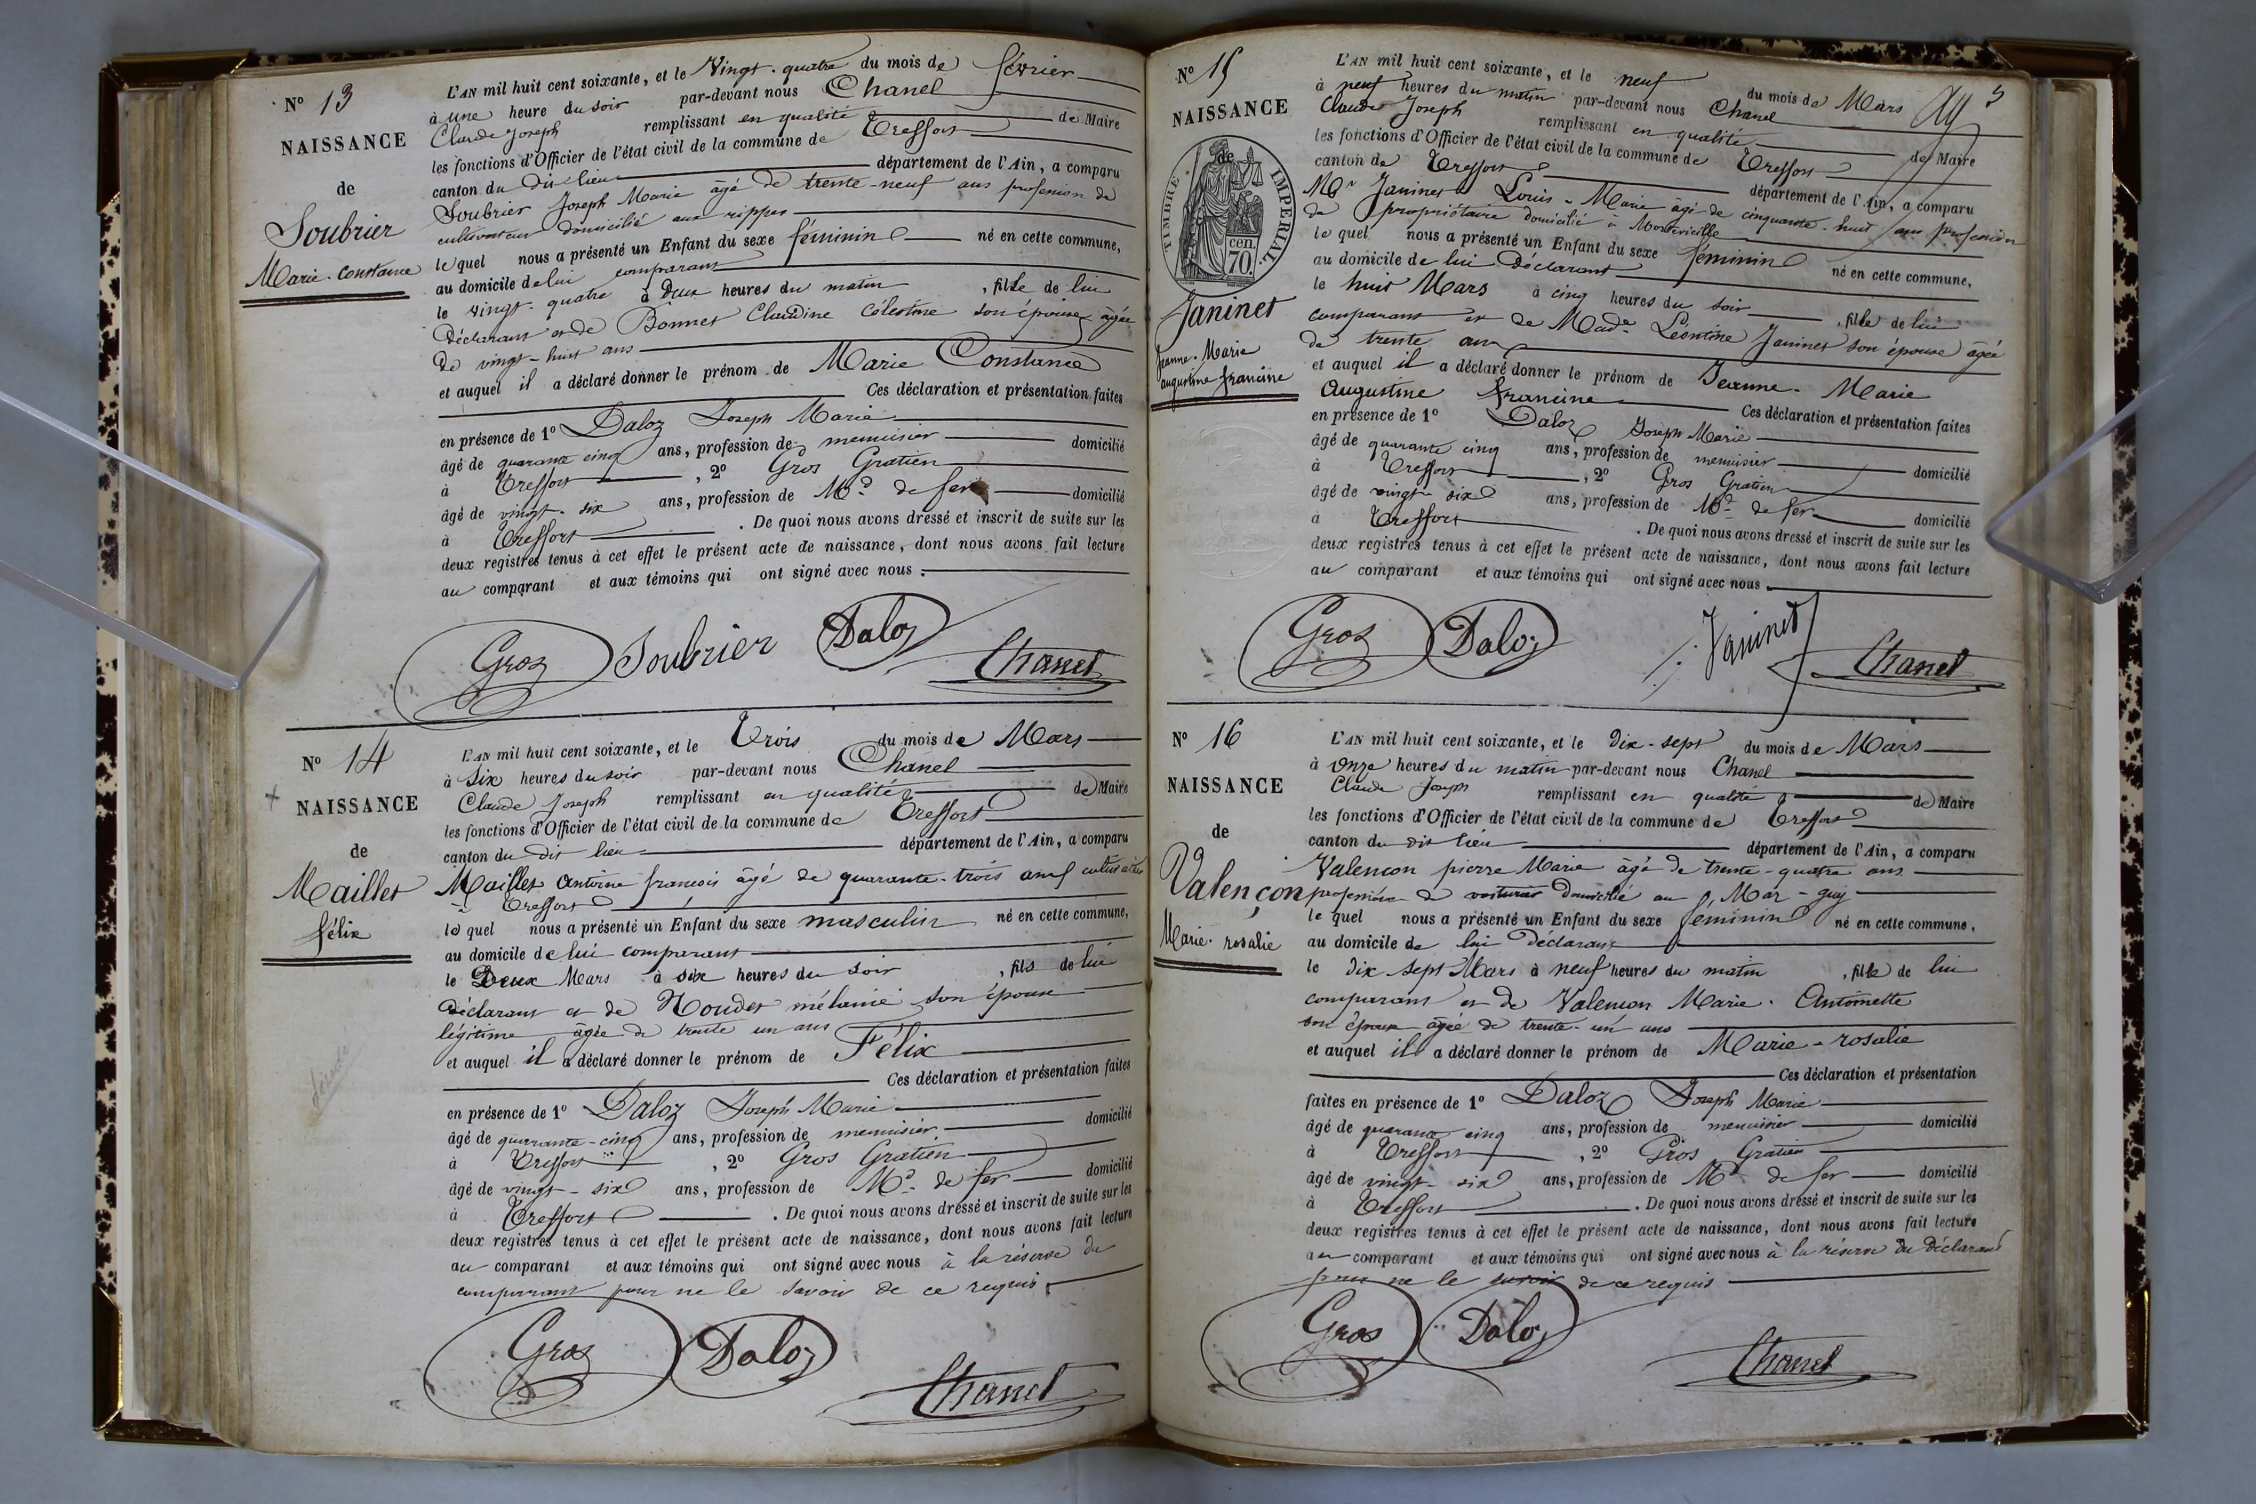 N° 13
NAISSANCE
de
Soubrier
Marie-Constance
L'AN mil huit cent soixante, et le Vingt-quatre du mois de février
à une heure du soir par-devant nous Chanel
Claude Joseph remplissant en qualité de Maire
les fonctions d'Officier de l'état civil de la commune de Treffort
canton du dit lieu département de l'Ain, a comparu
Soubrier Joseph Marie âgé de trente-neuf ans profession de
cultivateur domicilié aux rippes
lequel nous a présenté un Enfant du sexe féminin né en cette commune,
au domicile de lui comparant
le vingt-quatre à deux heures du matin, fille de lui
déclarant et de Bonnet Claudine Célestine son épouse âgée
de vingt-huit ans
et auquel il a déclaré donner le prénom de Marie Constance
Ces déclaration et présentation faites
en présence de 1° Daloz Joseph Marie
âgé de quarante cinq ans, profession de menuisier domicilié
à Treffort, 2° Gros Gratien
âgé de vingt-six ans, profession de Md de fer domicilié
à Treffort. De quoi nous avons dressé et inscrit de suite sur les
deux registres tenus à cet effet le présent acte de naissance, dont nous avons fait lecture
au comparant et aux témoins qui ont signé avec nous.
Gros Soubrier Daloz
Chanel
N° 14
NAISSANCE
de
Maillet
félix
L'AN mil huit cent soixante, et le Trois du mois de Mars
à Six heures du soir par-devant nous Chanel
Claude Joseph remplissant en qualité de Maire
les fonctions d'Officier de l'état civil de la commune de Treffort
canton du dit lieu département de l'Ain, a comparu
Maillet antoine françois âgé de quarante-trois ans
à Treffort
lequel nous a présenté un Enfant du sexe masculin né en cette commune,
au domicile de lui comparant
le Deux Mars à six heures du soir, fils de lui
déclarant et de mélanie son épouse
légitime âgée de trente un ans
et auquel il a déclaré donner le prénom de Félix
Ces déclaration et présentation faites
en présence de 1° Daloz Joseph Marie
âgé de quarante-cinq ans, profession de menuisier domicilié
à Treffort, 2° Gros Gratien
âgé de vingt-six ans, profession de Md de fer domicilié
à Treffort. De quoi nous avons dressé et inscrit de suite sur les
deux registres tenus à cet effet le présent acte de naissance, dont nous avons fait lecture
au comparant et aux témoins qui ont signé avec nous à la réserve du
comparant pour ne le savoir de ce requis
Gros Daloz
Chanel
N° 15
NAISSANCE
de
TIMBRE IMPERIAL.
70 cen.
Janinet
Jeanne-Marie
augustine francine
L'AN mil huit cent soixante, et le neuf du mois de Mars
à neuf heures du matin par-devant nous Chanel
Claude Joseph remplissant en qualité de Maire
les fonctions d'Officier de l'état civil de la commune de Treffort
canton de Treffort département de l'Ain, a comparu
Mr Janinet Louis-Marie âgé de cinquante-huit ans profession
de propriétaire domicilié à
lequel nous a présenté un Enfant du sexe féminin né en cette commune,
au domicile de lui déclarant
le huit Mars à cinq heures du soir, fille de lui
comparant et de Made Léontine Janinet son épouse âgée
de trente ans
et auquel il a déclaré donner le prénom de Jeanne-Marie
Augustine francine Ces déclaration et présentation faites
en présence de 1° Daloz Joseph Marie
âgé de quarante cinq ans, profession de menuisier domicilié
à Treffort, 2° Gros Gratien
âgé de vingt-six ans, profession de Md de fer domicilié
à Treffort. De quoi nous avons dressé et inscrit de suite sur les
deux registres tenus à cet effet le présent acte de naissance, dont nous avons fait lecture
au comparant et aux témoins qui ont signé avec nous.
Gros Daloz Janinet
Chanel
N° 16
NAISSANCE
de
Valençon
Marie-rosalie
L'AN mil huit cent soixante, et le dix-sept du mois de Mars
à onze heures du matin par-devant nous Chanel
Claude Joseph remplissant en qualité de Maire
les fonctions d'Officier de l'état civil de la commune de Treffort
canton du dit lieu département de l'Ain, a comparu
Valencon pierre Marie âgé de trente-quatre ans
profession de domicilié au
lequel nous a présenté un Enfant du sexe féminin né en cette commune,
au domicile de lui déclarant
le dix sept Mars à neuf heures du matin, fille de lui
comparant et de Valencon Marie-Antoinette
son épouse âgée de trente-un ans
et auquel il a déclaré donner le prénom de Marie-rosalie
Ces déclaration et présentation
faites en présence de 1° Daloz Joseph Marie
âgé de quarante cinq ans, profession de menuisier domicilié
à Treffort, 2° Gros Gratien
âgé de vingt-six ans, profession de Md de fer domicilié
à Treffort. De quoi nous avons dressé et inscrit de suite sur les
deux registres tenus à cet effet le présent acte de naissance, dont nous avons fait lecture
au comparant et aux témoins qui ont signé avec nous à la réserve du déclarant
pour ne le savoir de ce requis
Gros Daloz
Chanel